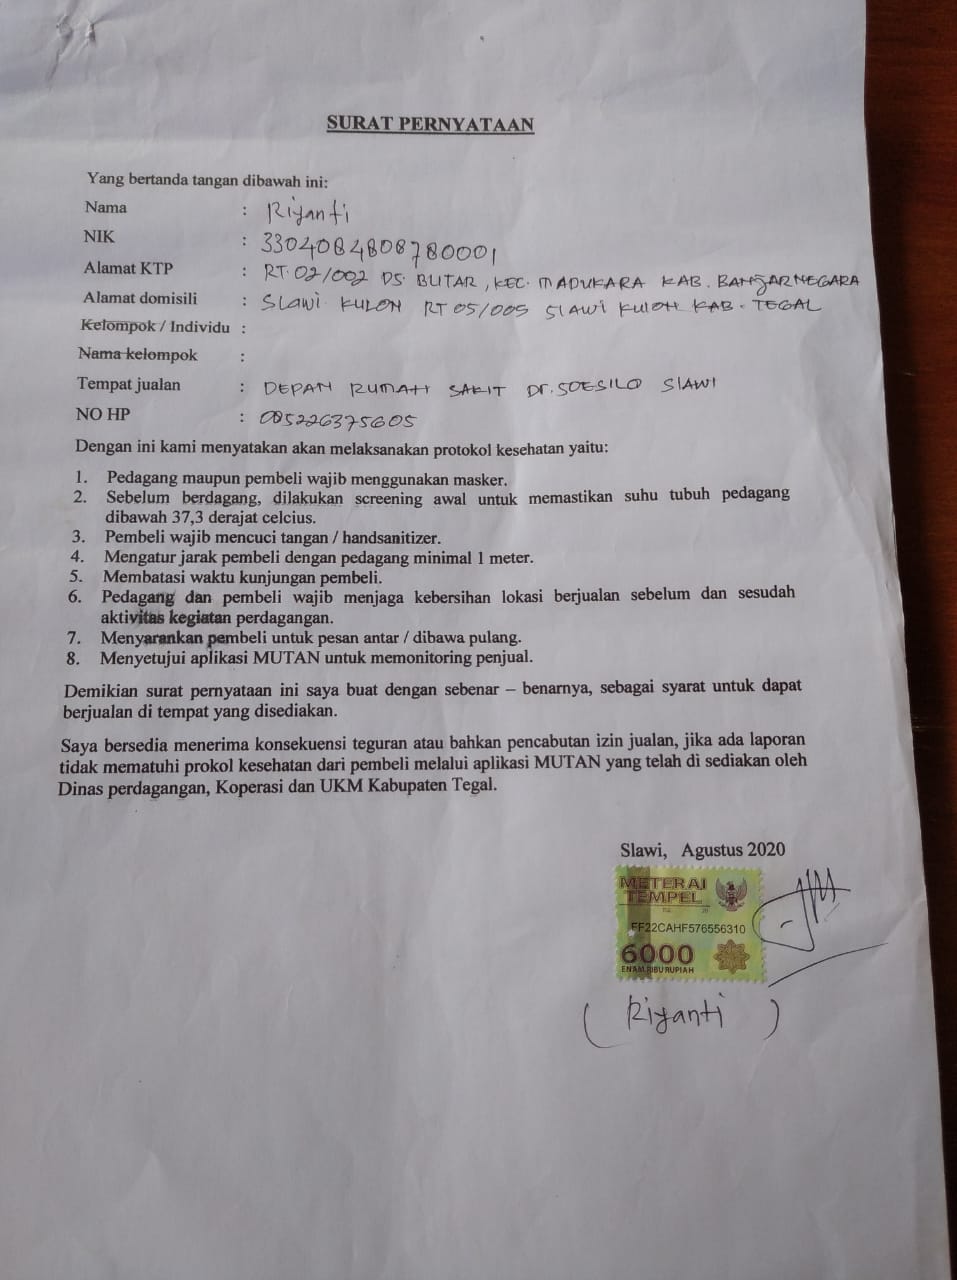 SURAT PERNYATAAN
Yang bertanda tangan dibawah ini:
Nama : Riyanti
NIK : 3304084808780001
Alamat KTP : RT. 02/002 DS. BUTAR, KEC. MADUKARA KAB. BANJARNEGARA
Alamat domisili : SLAWI KULON RT 05/005 SLAWI KULON KAB. TEGAL
Kelompok / Individu :
Nama kelompok :
Tempat jualan : DEPAN RUMAH SAKIT Dr. SOESILO SLAWI
NO HP : 085226375605
Dengan ini kami menyatakan akan melaksanakan protokol kesehatan yaitu:
1. Pedagang maupun pembeli wajib menggunakan masker.
2. Sebelum berdagang, dilakukan screening awal untuk memastikan suhu tubuh pedagang
dibawah 37,3 derajat celcius.
3. Pembeli wajib mencuci tangan / handsanitizer.
4. Mengatur jarak pembeli dengan pedagang minimal 1 meter.
5. Membatasi waktu kunjungan pembeli.
6. Pedagang dan pembeli wajib menjaga kebersihan lokasi berjualan sebelum dan sesudah
aktivitas kegiatan perdagangan.
7. Menyarankan pembeli untuk pesan antar / dibawa pulang.
8. Menyetujui aplikasi MUTAN untuk memonitoring penjual.
Demikian surat pernyataan ini saya buat dengan sebenar – benarnya, sebagai syarat untuk dapat
berjualan di tempat yang disediakan.
Saya bersedia menerima konsekuensi teguran atau bahkan pencabutan izin jualan, jika ada laporan
tidak mematuhi prokol kesehatan dari pembeli melalui aplikasi MUTAN yang telah di sediakan oleh
Dinas perdagangan, Koperasi dan UKM Kabupaten Tegal.
Slawi, Agustus 2020
METERAI
TEMPEL
FF22CAHF576556310
6000
ENAM RIBU RUPIAH
( Riyanti )